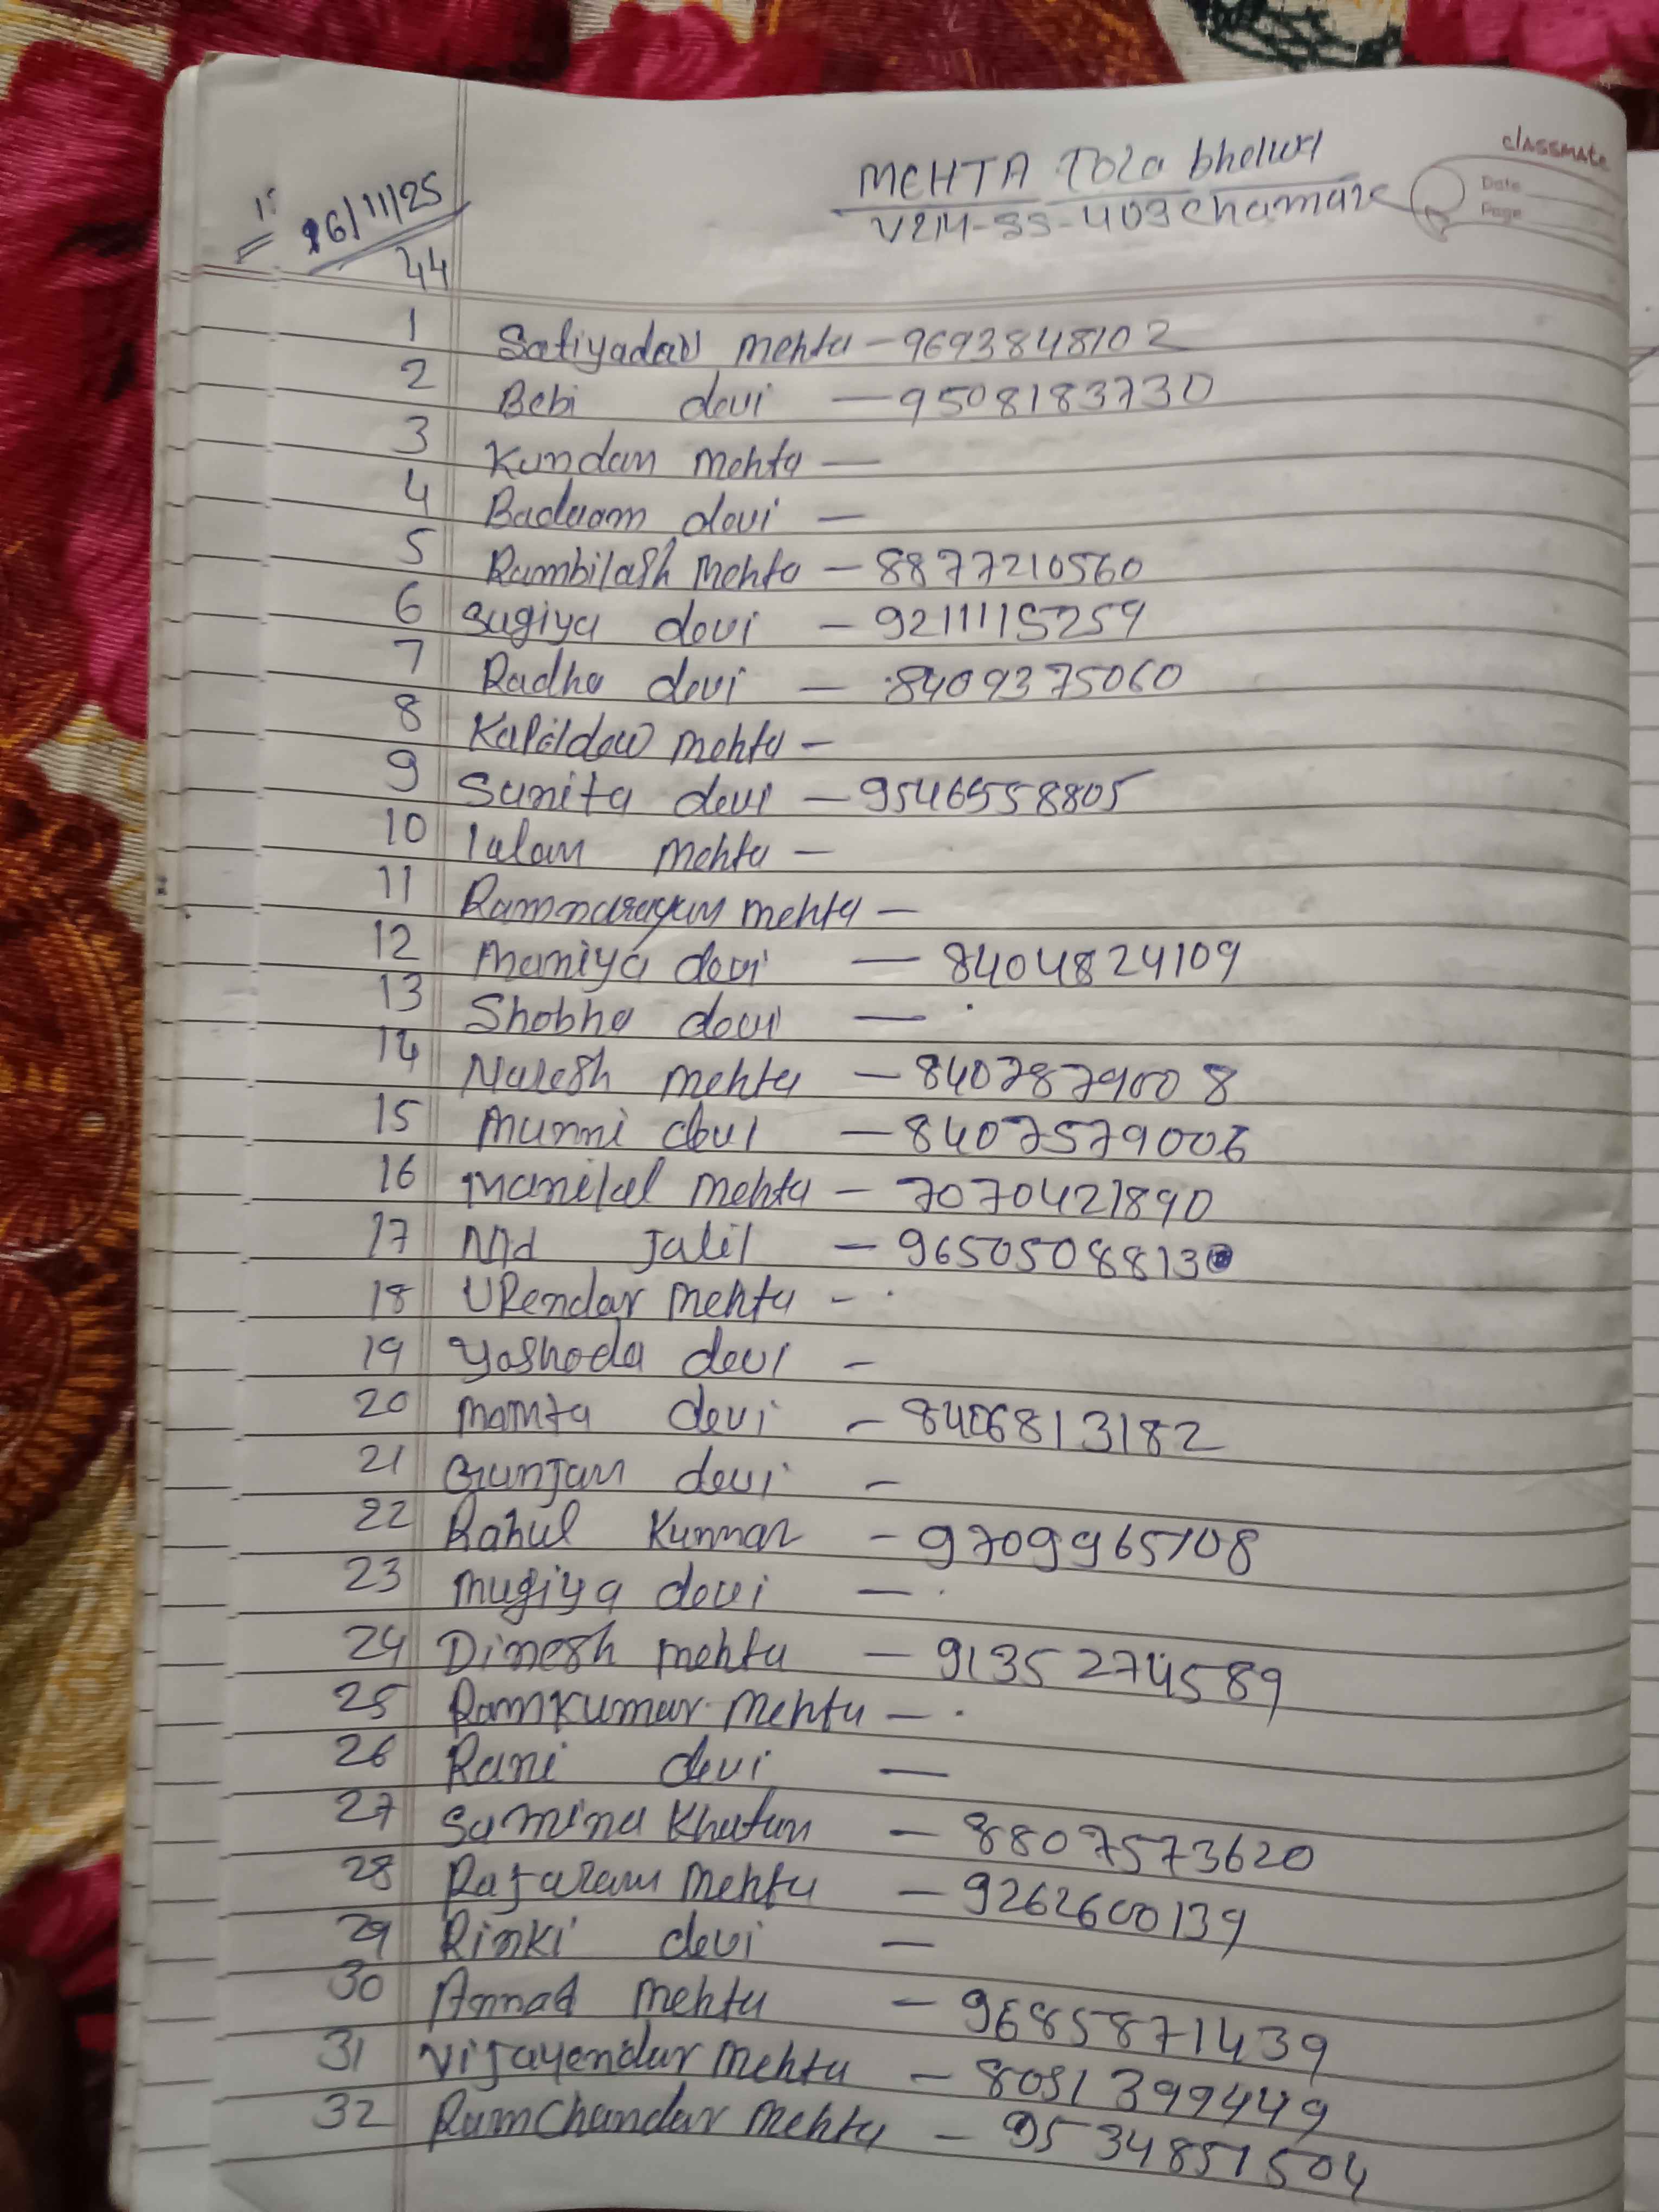 classmate
Date
Page
MEHTA Tola bhelwa
V2M-SS-409 Chamare
16/11/25
44
1 Satiyadav mehta - 9693848102
2 Bebi devi - 9508183730
3 Kundan mehta -
4 Badaam devi -
5 Rambilash Mehta - 8877210560
6 Sugiya devi - 9211115259
7 Radha devi - 8409375060
8 Kapildew mehta -
9 Sunita devi - 9546558805
10 lalan mehta -
11 Ramnarayan mehta -
12 Maniya devi - 8404824109
13 Shobha devi -
14 Naresh mehta - 8407879008
15 Munni devi - 8407579006
16 Manilal mehta - 7070421890
17 Md Jalil - 9650508813
18 UPendar mehta -
19 Yashoda devi -
20 Mamta devi - 8406813182
21 Gunjan devi -
22 Rahul Kumar - 9709965108
23 Mugiya devi -
24 Dinesh mehta - 91352274589
25 Ramkumar mehta -
26 Rani devi -
27 Samina Khatun - 8807573620
28 Rajaram Mehta - 9262600139
29 Rinki devi -
30 Annad mehta - 9685871439
31 Vijayendar mehta - 8051399449
32 Ramchandar mehta - 9534851504